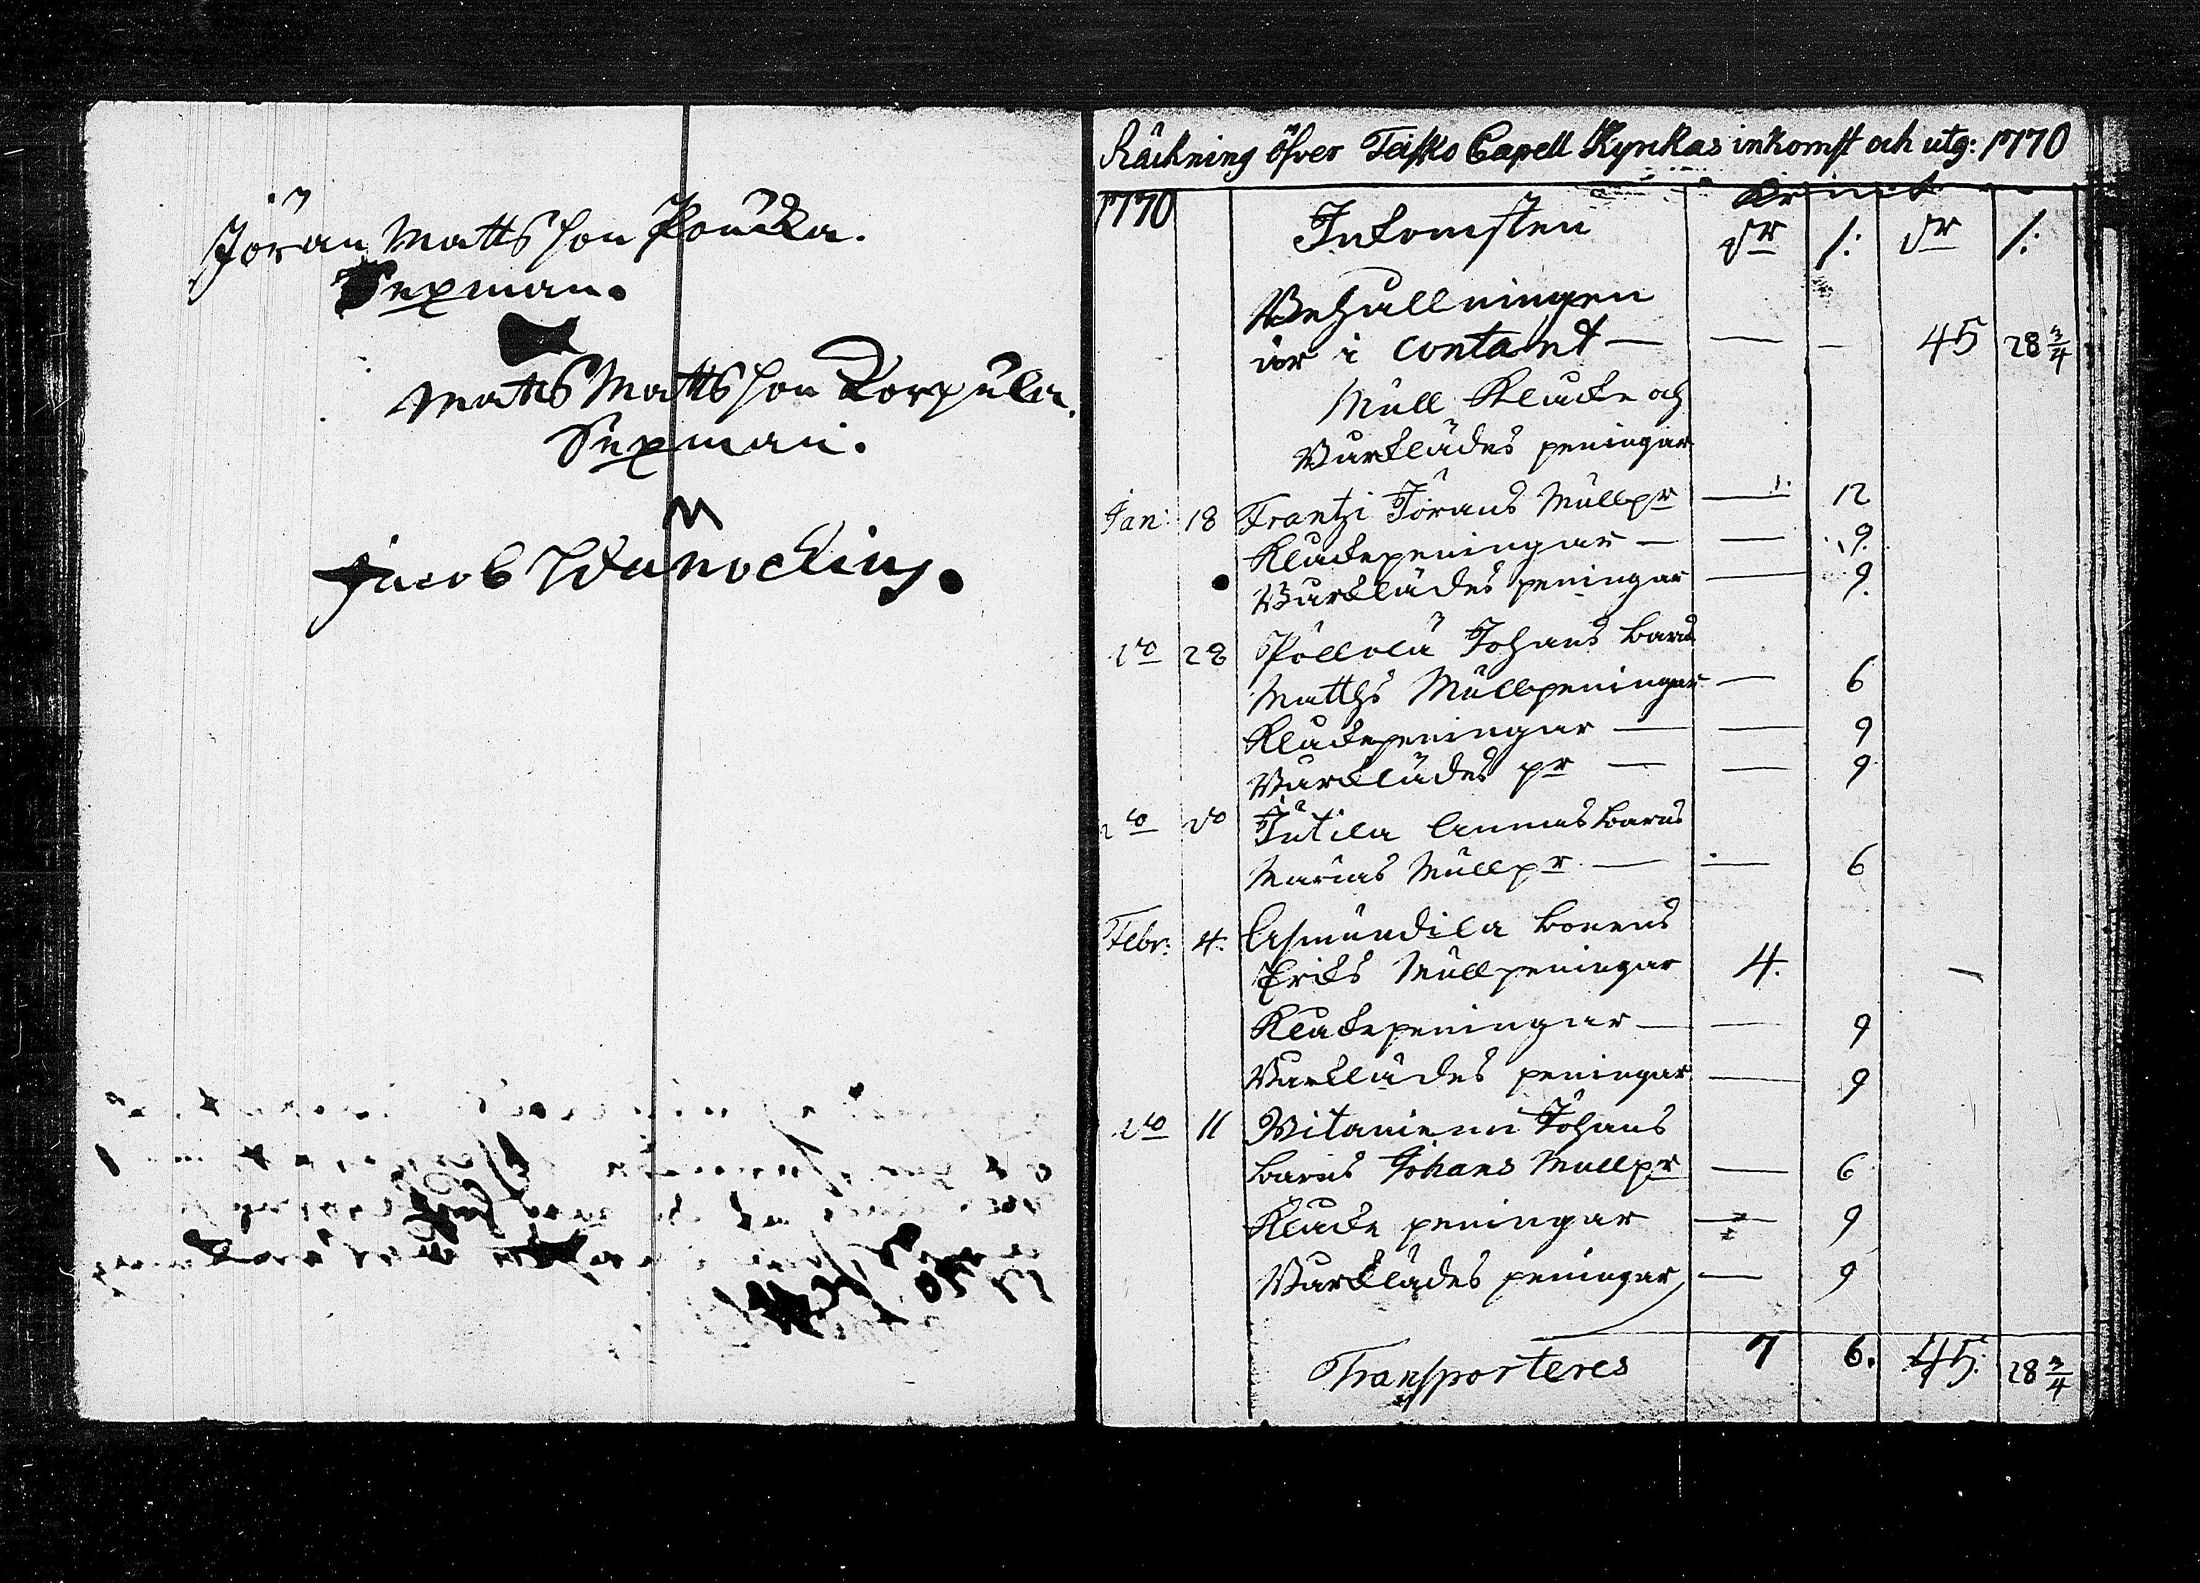 Jöran Mattsson Poucka.
Sexman.
Matts Mattsson Korpula.
Sexman.
Jacob
Räckning öfver Teisko Capell Kyrckas inkomst och utg: 1770
1770 Inkomsten dr /: dr /:
Behållningen
är i contant — — — 45 28 3/4
Mull Klacke och
Barklädes peningar
Jan: 18 Frantzi Jörans Mullpr — 12
Klackepeningar — — 9.
Barklädes peningar — 9.
do 28 Pöllölä Johans barns
Matths Mullpeningar — 6
Klackepeningar — — 9
Barklädes pr — — 9
do do Jutila Annas barns
Marias Mullpr — — 6
Febr: 4. Asmundila bonens
Eriks Mullpeningar 4. —
Klackepeningar — — 9
Barklädes peningar — 9
do 11 Witaniemi Johans
barns Johans Mullpr — 6
Klacke peningar — 9
Barklädes peningar — 9
Transporteres 7 6. 45. 28 3/4